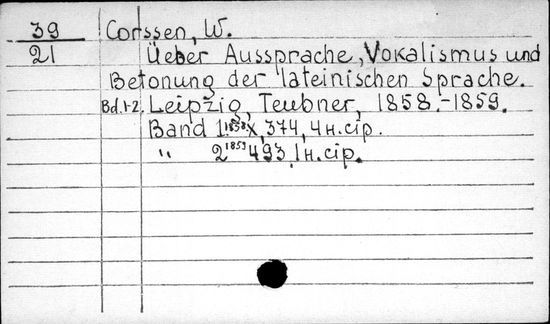 39 Corssen, W.
21 Ueber Aussprache, Vokalismus und
Betonung der lateinischen Sprache.
Bd. 1-2. Leipzig, Teubner, 1858.-1859.
Band 1. 1858 X, 374, 4 н. стр.
" 2 1859 493, 1 н. стр.